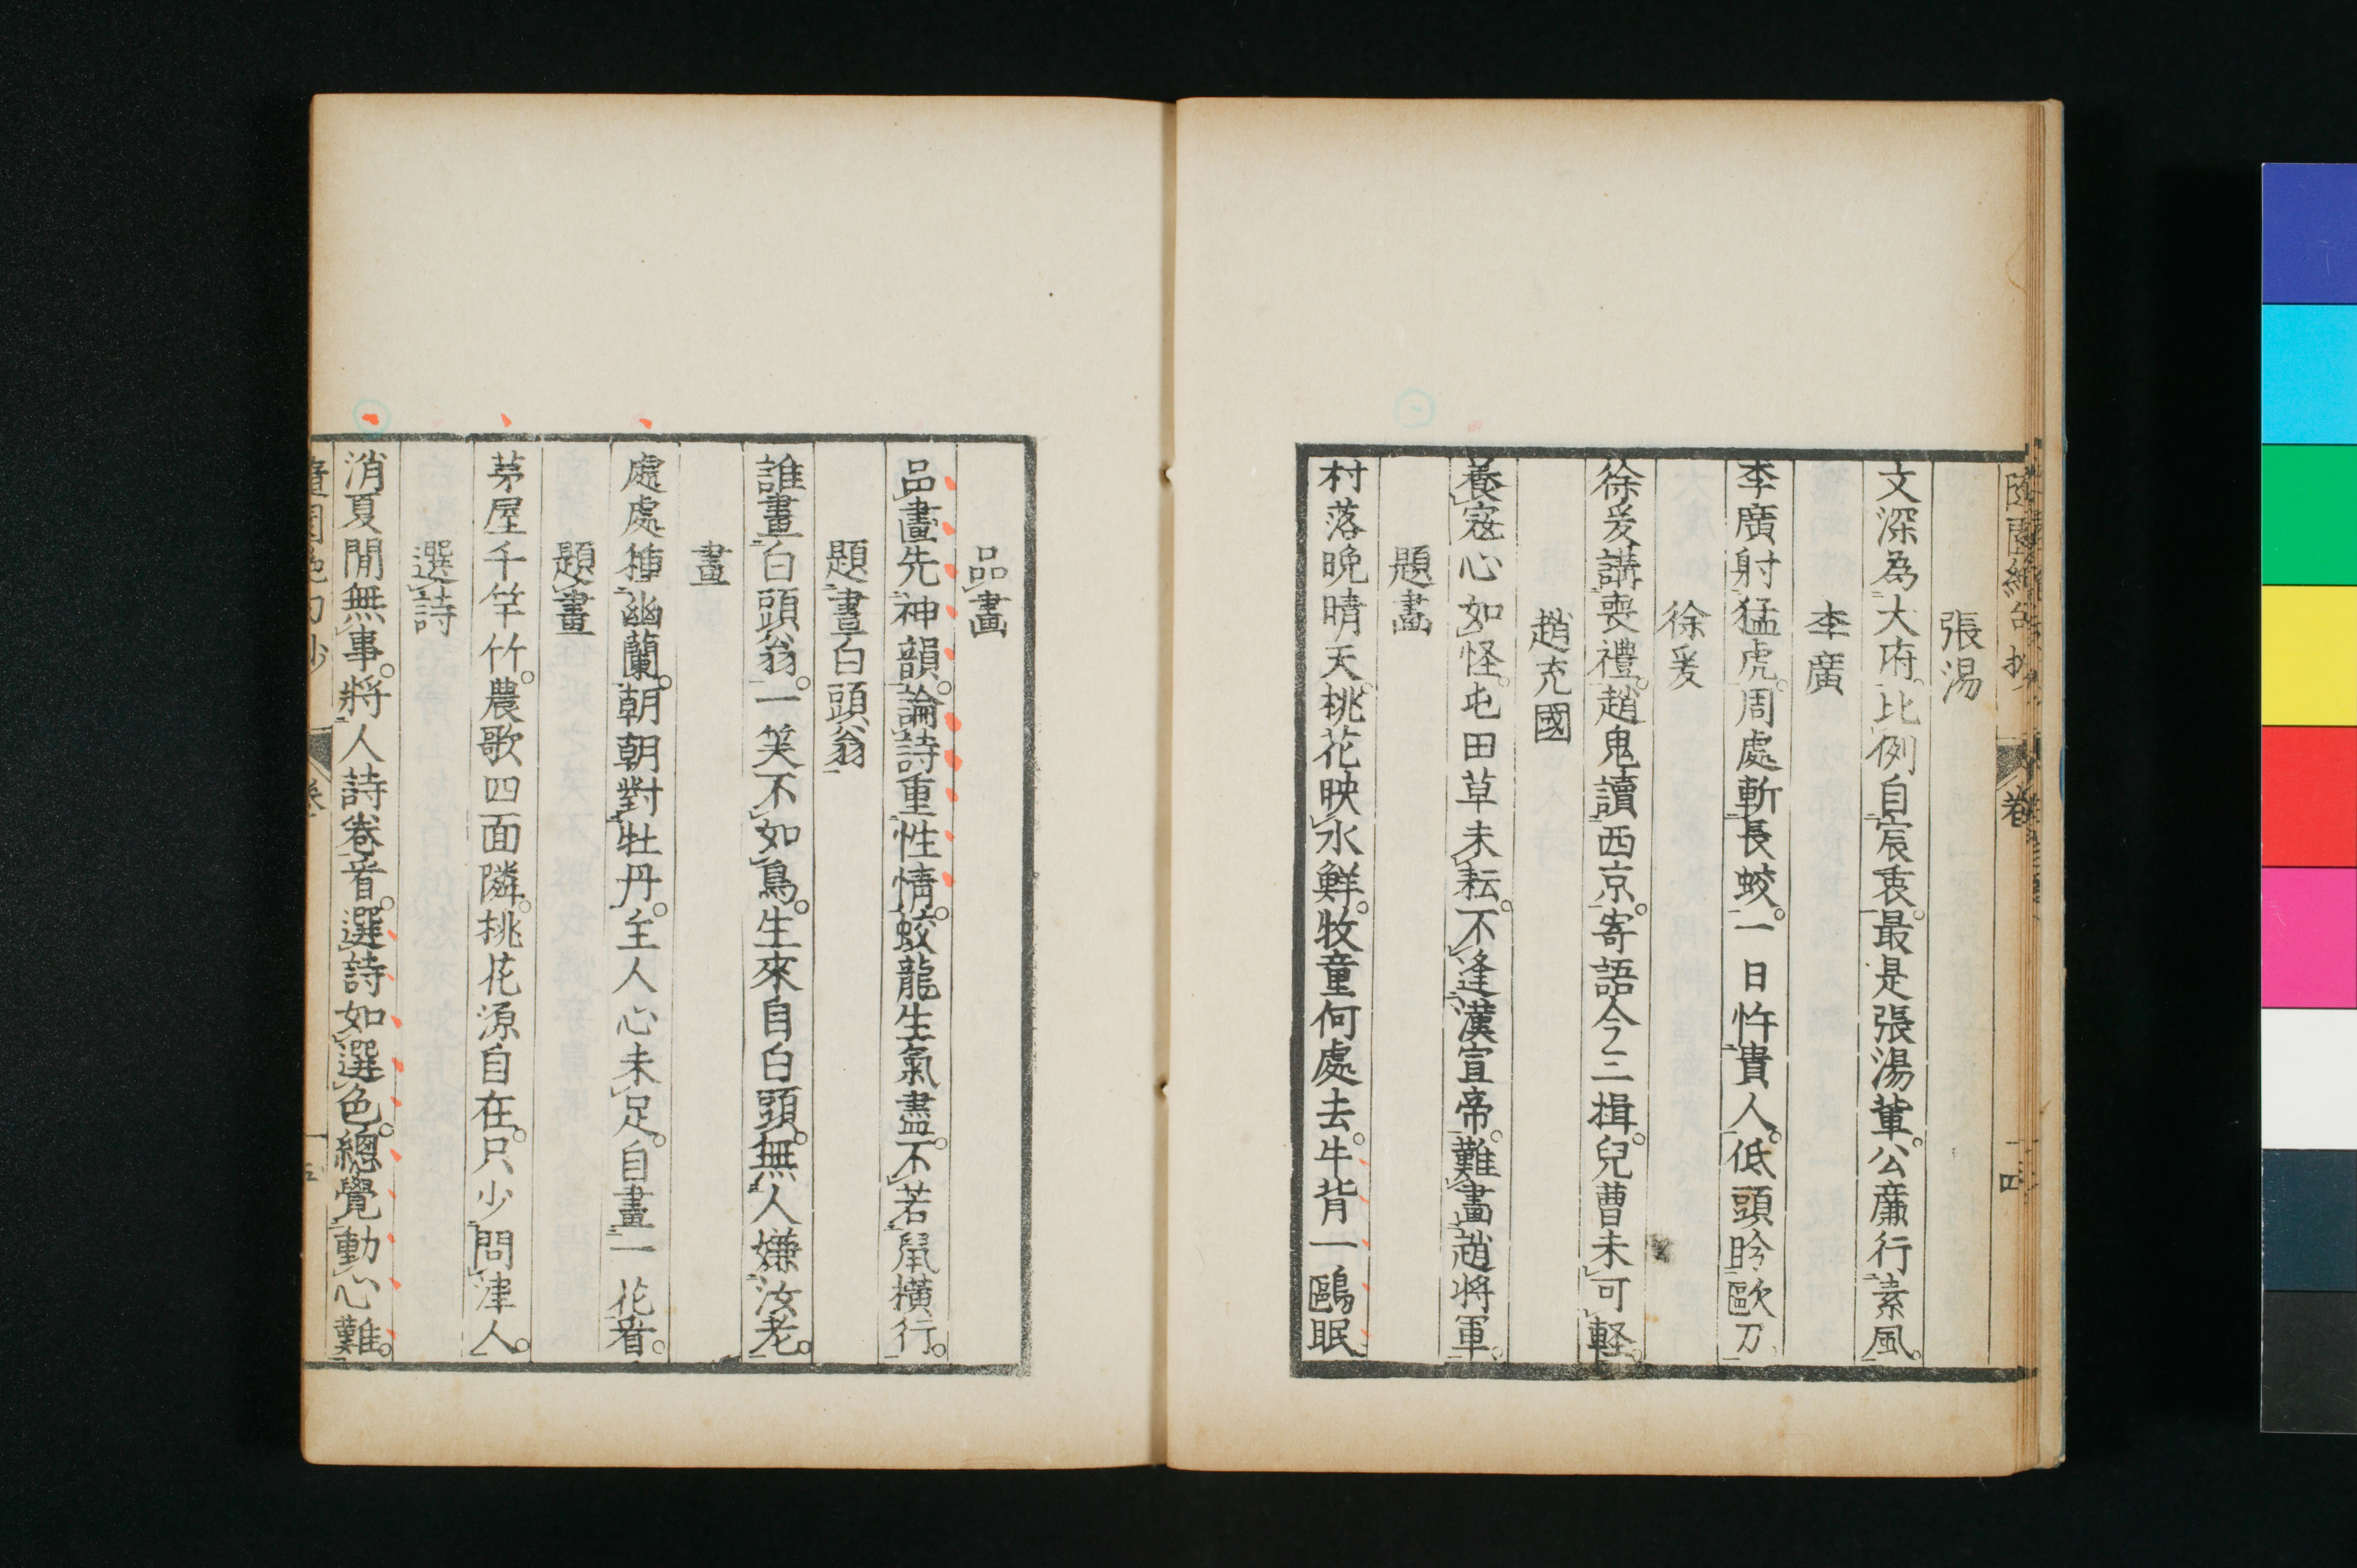 張湯
文深為大府比例自宸衷最是張湯輩公廉行素風
李廣
李廣射猛虎周處斬長蛟一日忤貴人低頭盻歐刀
徐爰
徐爰講喪禮趙鬼讀西京寄語今三揖兒曹未可軽
趙充國
養寇心如怪屯田草未耘不逢漢宣帝難畵趙將軍
題畵
村落晚晴天桃花映水鮮牧童何處去牛背一鷗眠
品畵
品畫先神韻論詩重性情蛟龍生氣盡不若鼠橫行
題畫白頭翁
誰畫白頭翁一笑不如鳥生來自白頭無人嫌汝老
畫
處處種幽蘭朝朝對牡丹主人心未足自畫一花看
題畫
茅屋千竿竹農歌四面隣桃花源自在只少問津人
選詩
消夏閒無事將人詩卷看選詩如選色總覺動心難